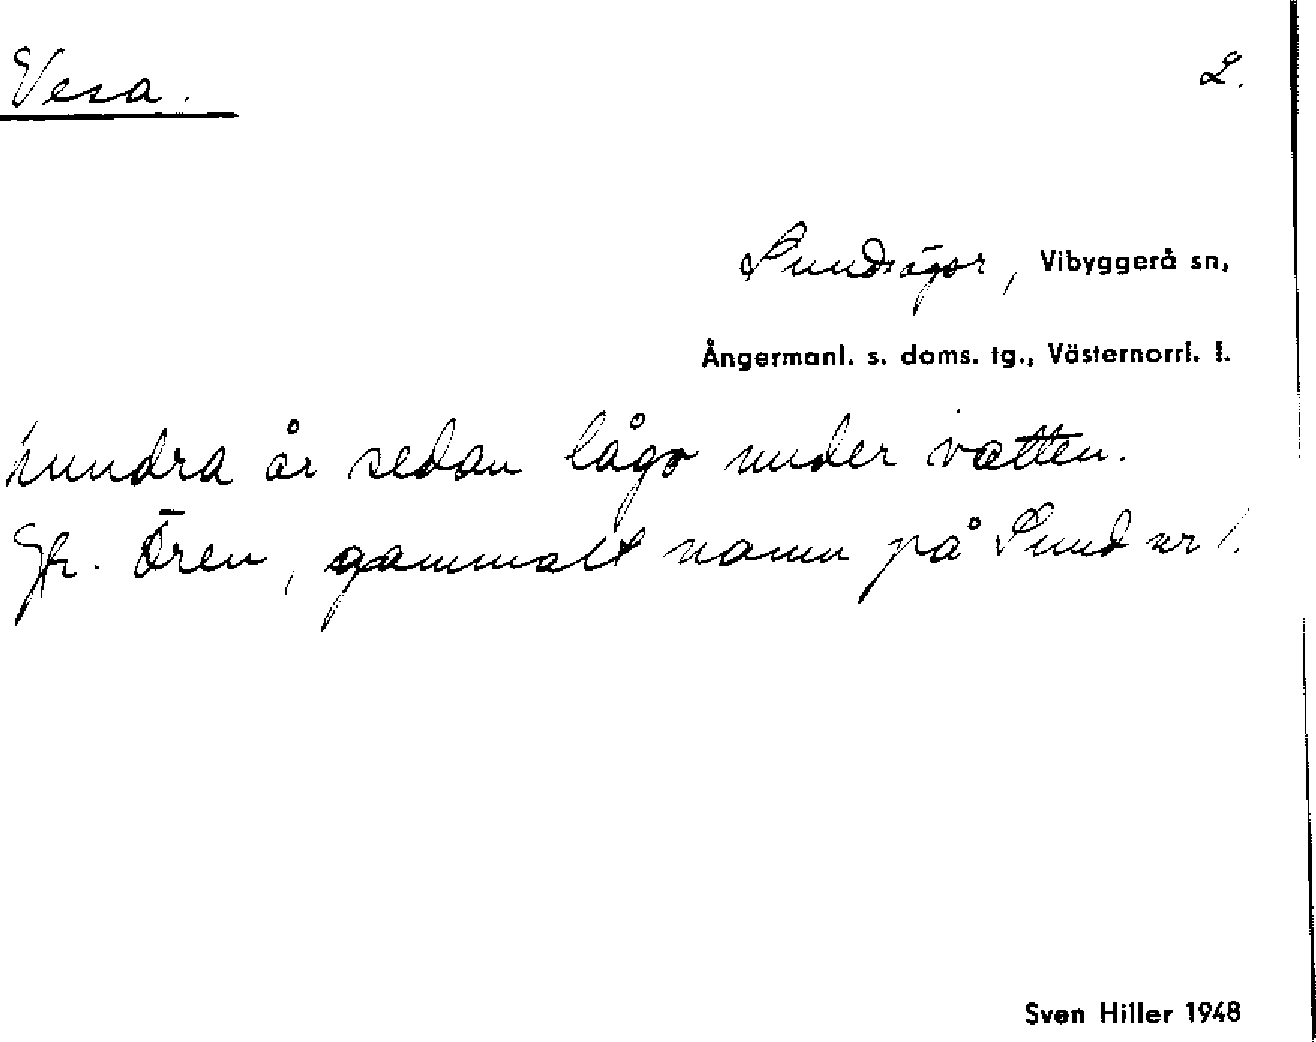 Vesa. 2.
Sundsägor, Vibyggerå sn,
Ångermanl. s. doms. tg., Västernorrl. l.
hundra år sedan lågo under vatten.
Jfr. Ören, gammalt namn på Sund nr 1.
Sven Hiller 1948